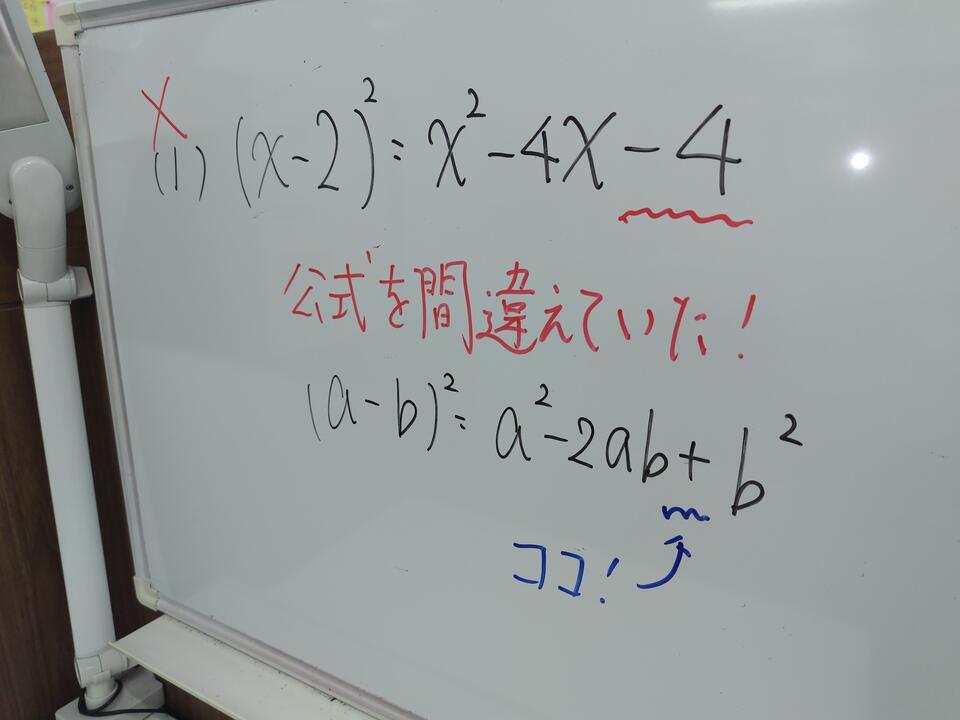 ×
(1) (x-2)² = x² - 4x - 4
公式を間違えていた!
(a-b)² = a² - 2ab + b²
ココ!